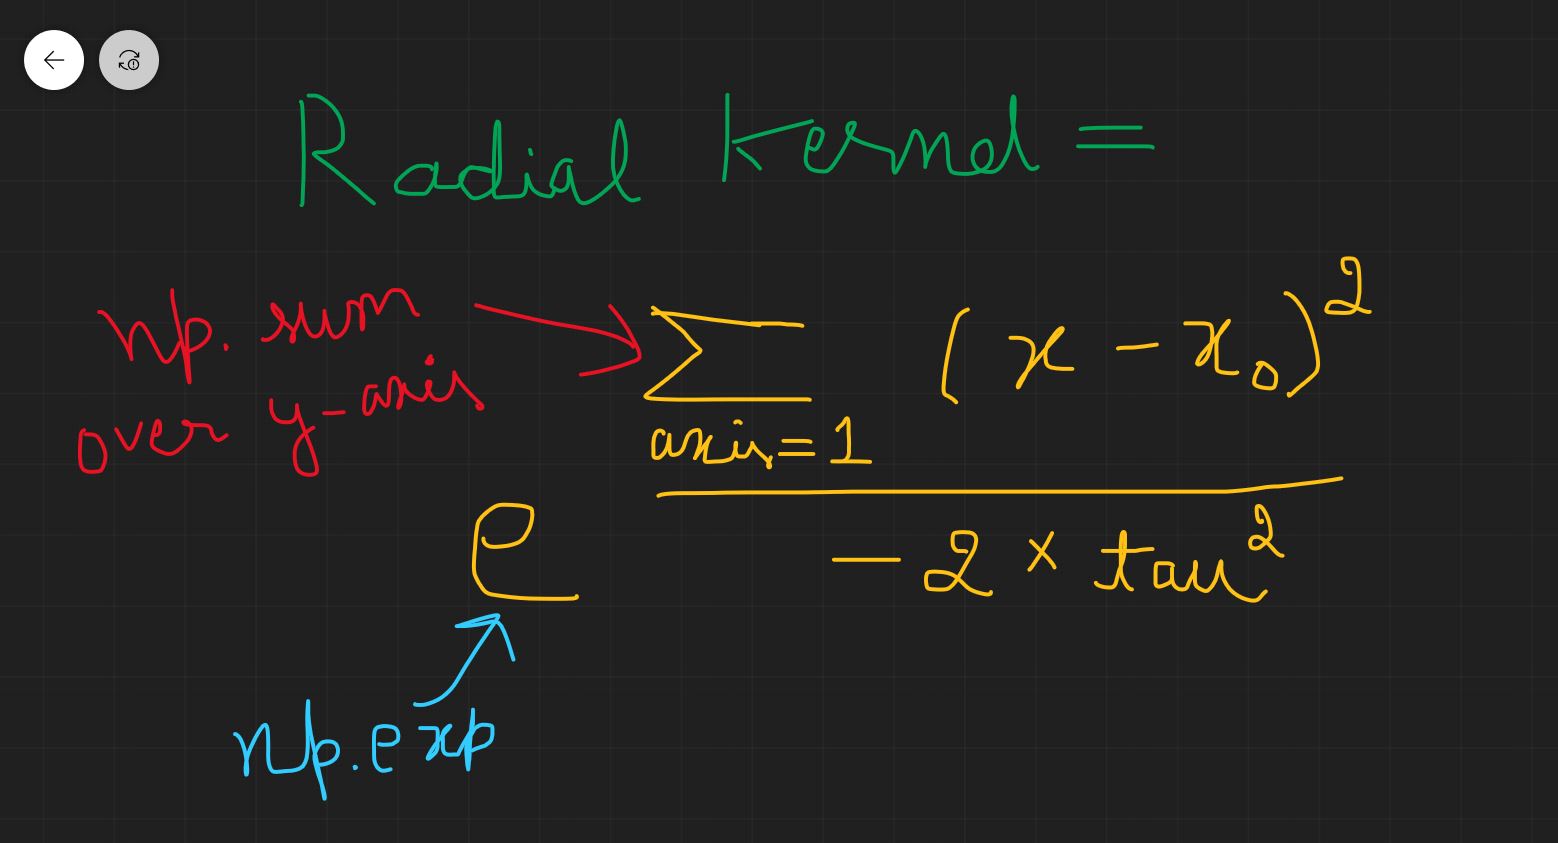 Radial Kernel =
np. sum
over y-axis
∑ (x - x₀)²
axis=1
e
- 2 × tau²
np.exp